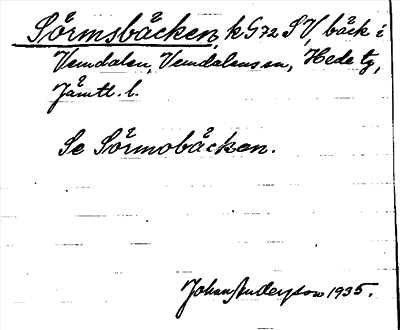 Sörmsbäcken, kG72 SV, bäck i
Vemdalen, Vemdalens sn, Hede tg,
Jämtl. l.
Se Sörmobäcken.
Johan Anderson 1935.